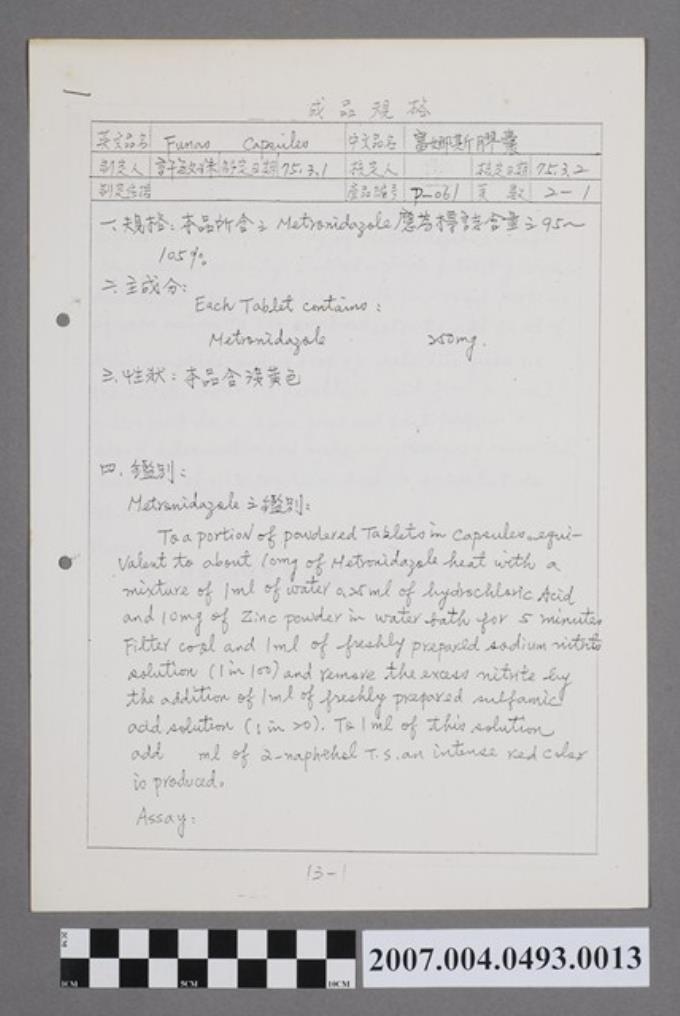 成品規格
英文品名 Funas Capsules 中文品名 富娜斯膠囊
制定人 許敏洙 制定日期 75.3.1 核定人 核定日期 75.3.2
制定依據 產品編號 P-061 頁數 2-1
一、規格:本品所含之Metronidazole應為標誌含量之95~
105%
二、主成分:
Each Tablet contains:
Metronidazole 250mg.
三、性狀:本品含淺黃色
四、鑑別:
Metronidazole之鑑別:
To a portion of powdered Tablets in Capsules equi-
valent to about 10mg of Metronidazole heat with a
mixture of 1ml of water 0.25ml of hydrochloric Acid
and 10mg of Zinc powder in water bath for 5 minutes
Filter cool and 1ml of freshly prepared sodium nitrite
solution (1 in 100) and remove the excess nitrite by
the addition of 1ml of freshly prepared sulfamic
acid solution (1 in 20). To 1ml of this solution
add ml of 2-naphthol T.S. an intense red color
is produced.
Assay:
13-1
2CM
0CM 5CM 10CM
2007.004.0493.0013